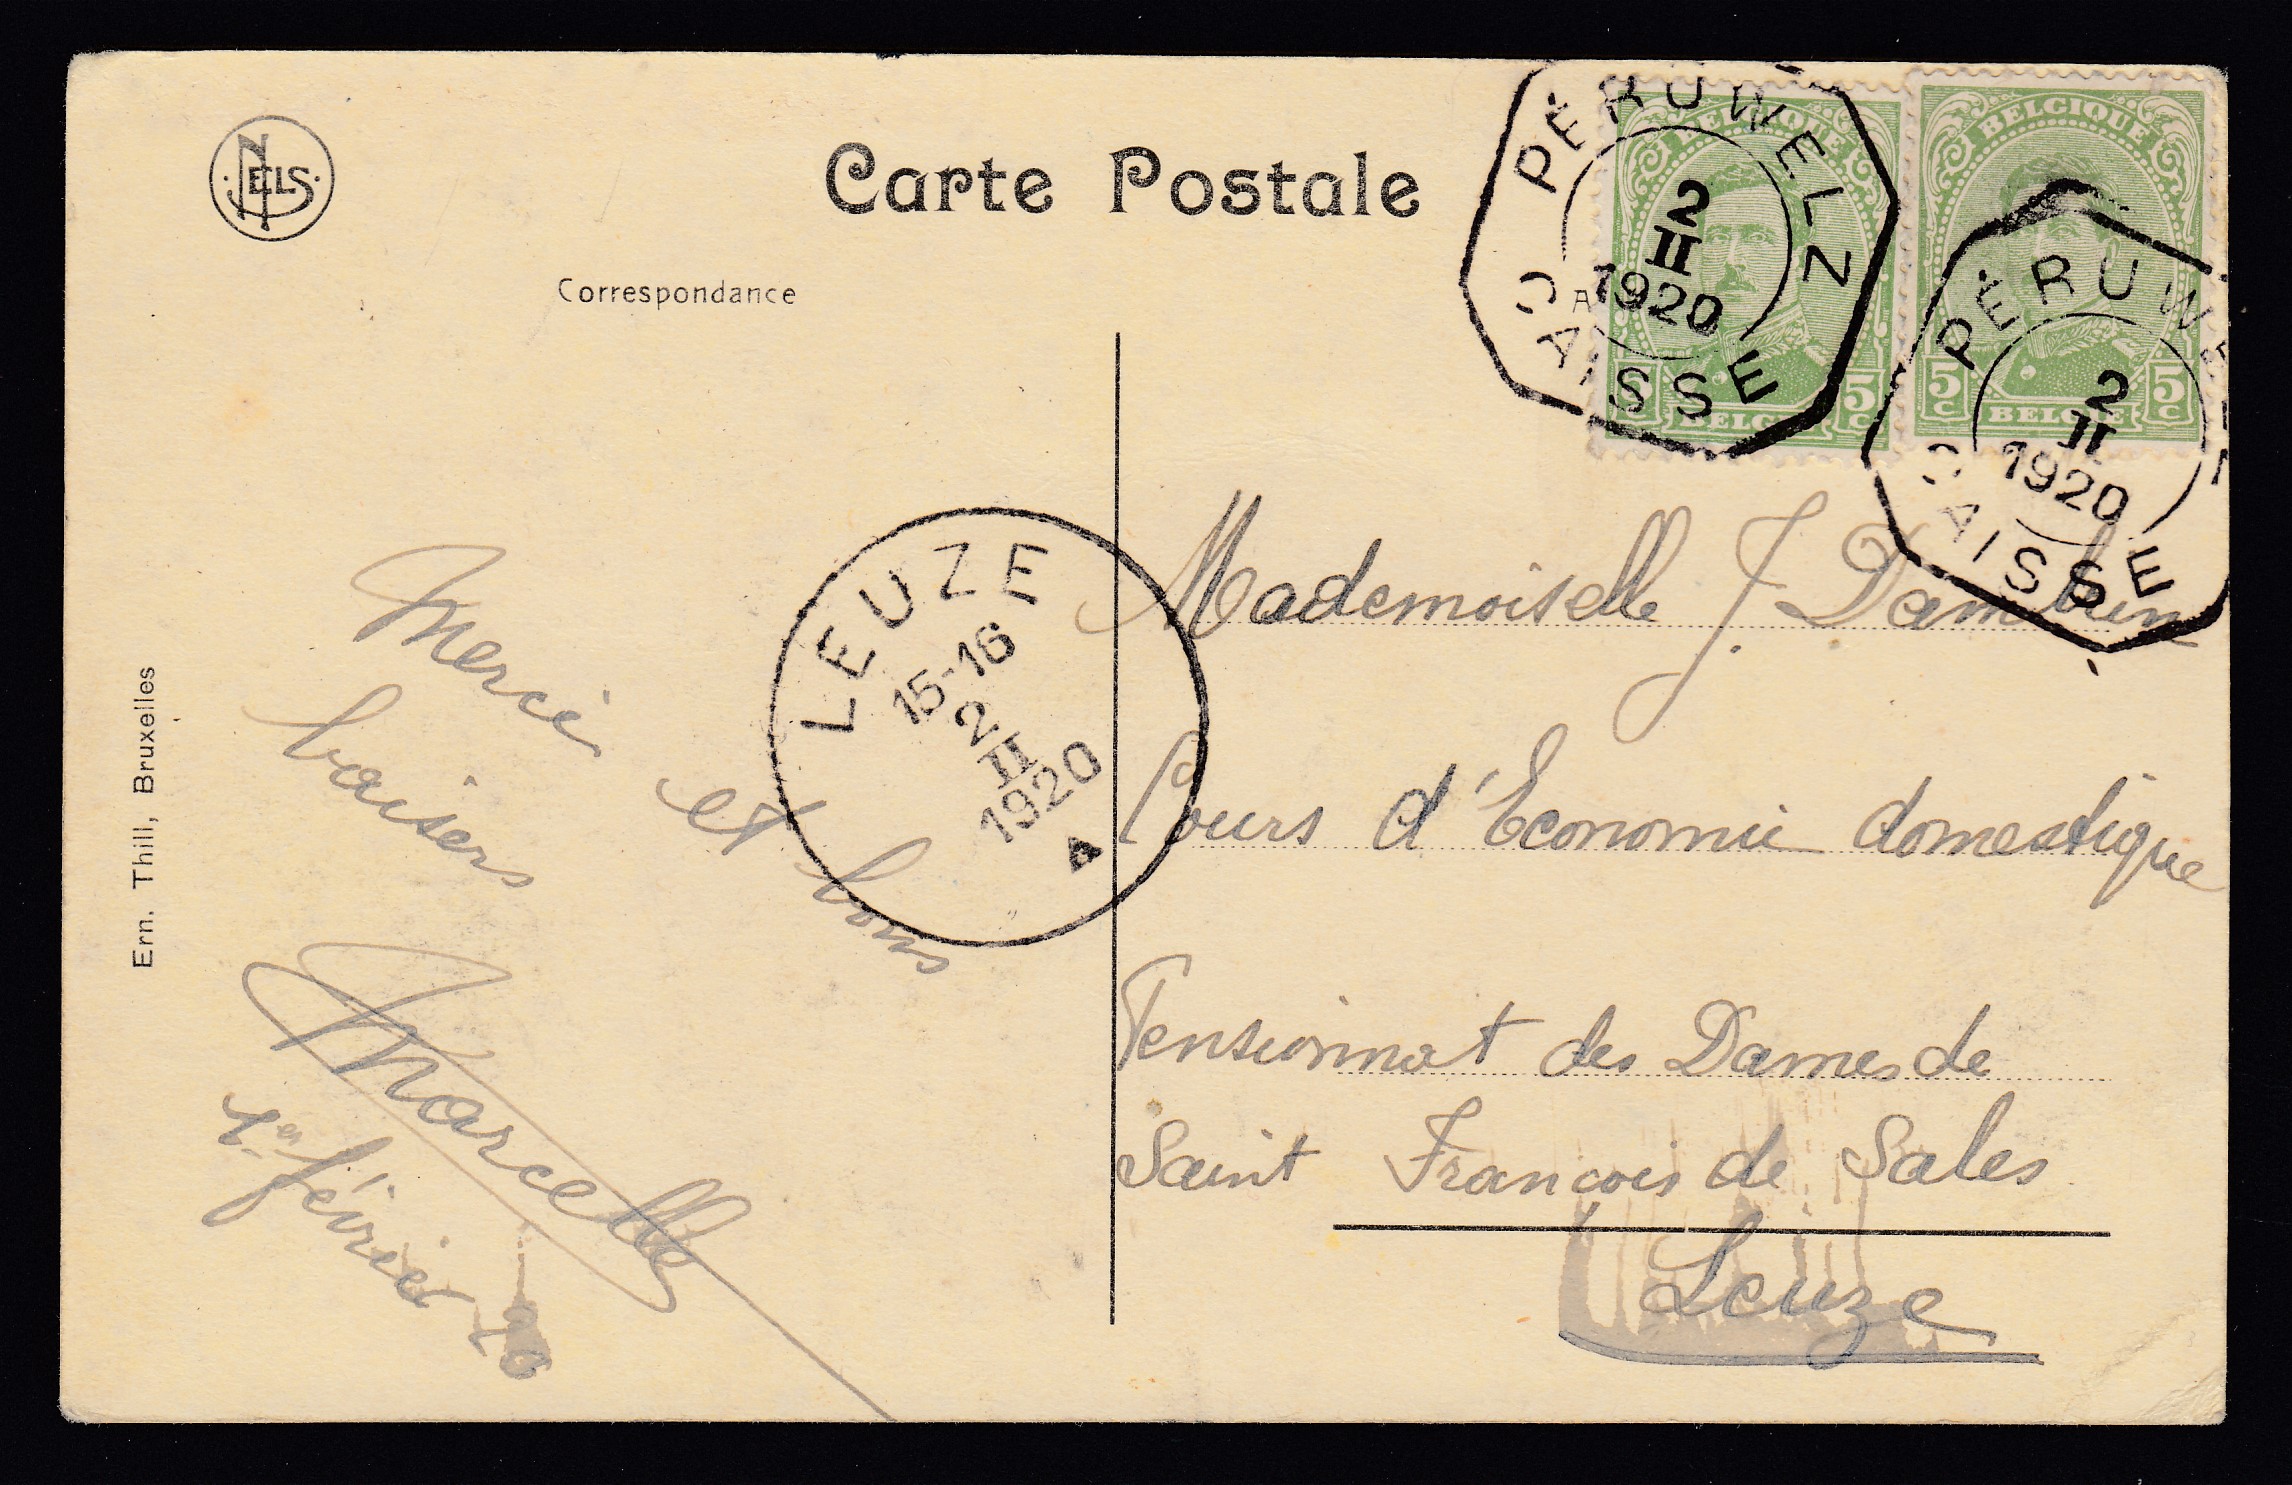 NELS
Carte Postale
Correspondance
Ern. Thill, Bruxelles
BELGIQUE
5c 5c
BELGIE
BELGIQUE
5c 5c
BELGIE
PÉRUWELZ
2
II
1920
CAISSE
PÉRUWE
2
II
1920
CAISSE
LEUZE
15-16
2
II
1920
Merci et bons
baisers
Marcelle
1er février 20
Mademoiselle J.
Cours d'Economie domestique
Pensionnat des Dames de
Saint François de Sales
Leuze